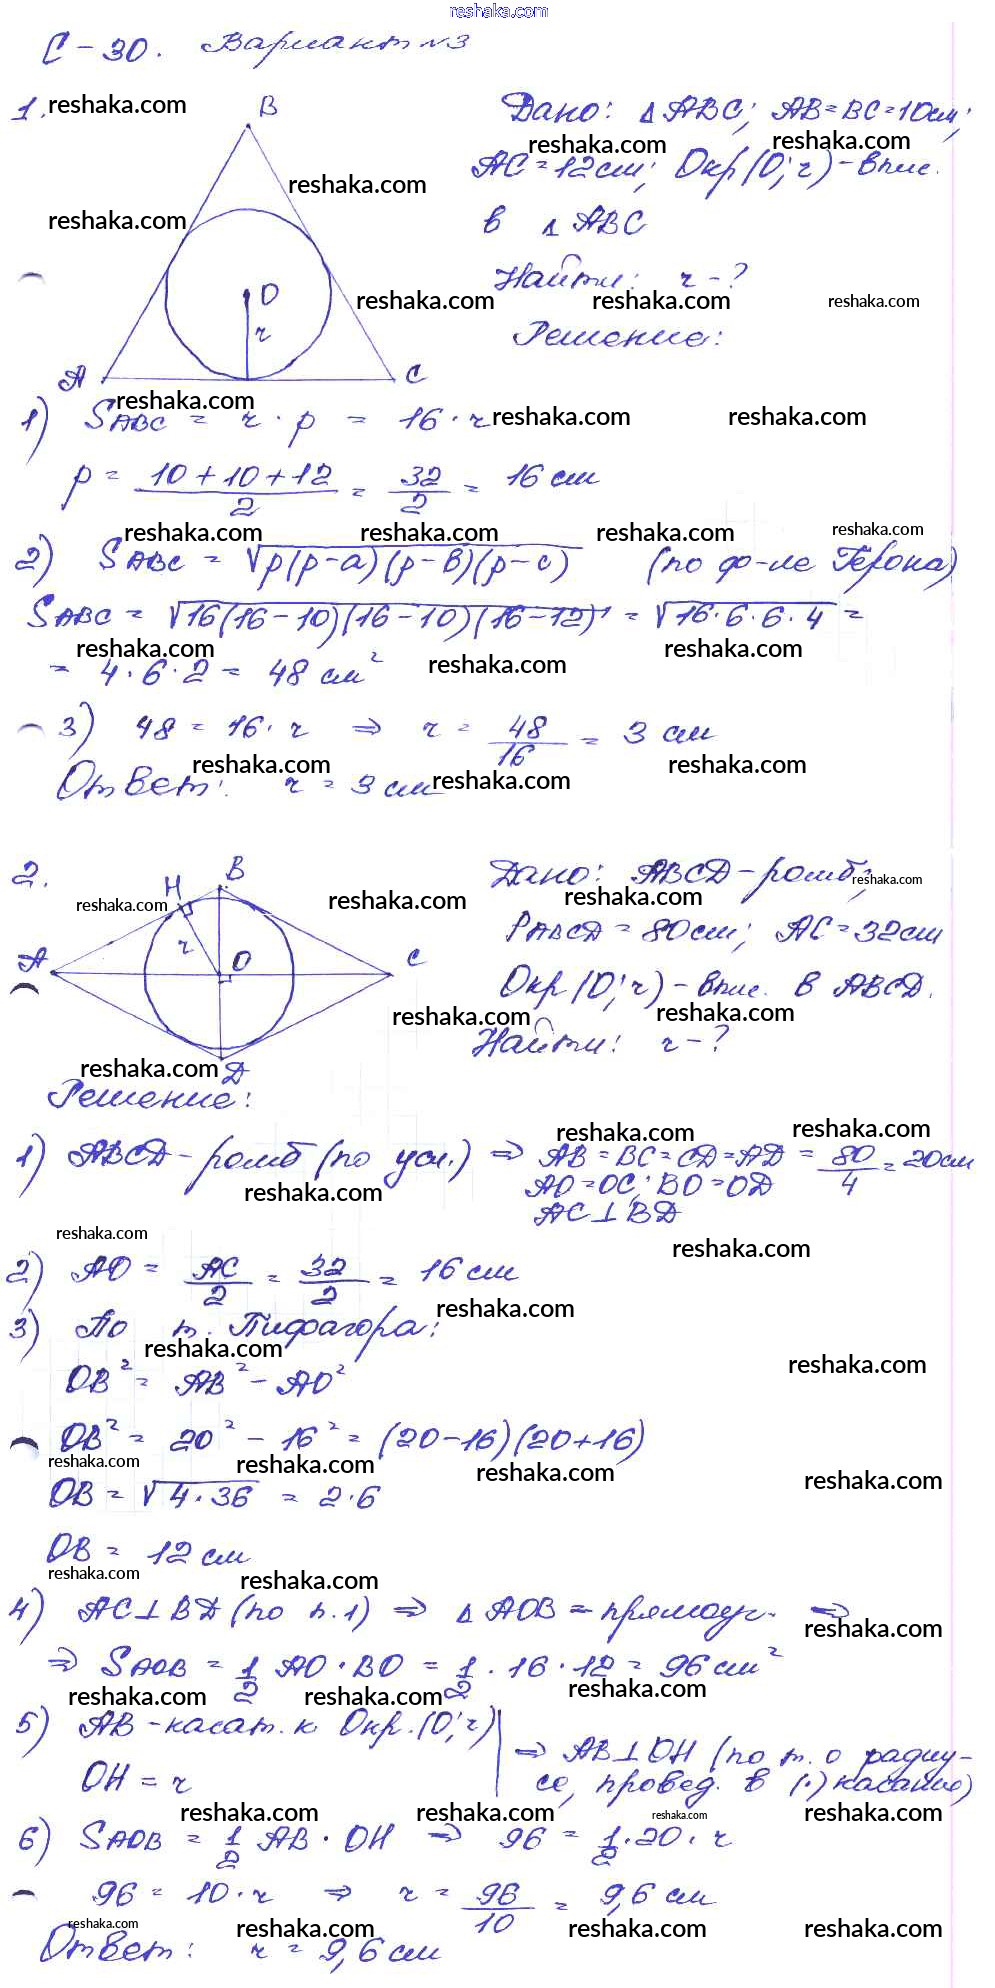 reshaka.com
С-30. Вариант №3
1.
B
O
r
A
C
Дано: △ABC; AB=BC=10см;
AC=12см; Окр(O;r)-впис.
в △ABC
Найти: r-?
Решение:
1) SABC = r · p = 16 · r
p = (10+10+12)/2 = 32/2 = 16 см
2) SABC = √(p(p-a)(p-в)(p-c)) (по ф-ле Герона)
SABC = √(16(16-10)(16-10)(16-12)) = √(16·6·6·4) =
= 4·6·2 = 48 см²
3) 48 = 16·r ⇒ r = 48/16 = 3 см
Ответ: r = 3 см
2.
B
H
r
A
O
C
D
Дано: ABCD-ромб;
PABCD = 80см; AC=32см
Окр(O;r)-впис. в ABCD.
Найти: r-?
Решение:
1) ABCD-ромб (по усл.) ⇒ AB=BC=CD=AD = 80/4 = 20см
AO=OC; BO=OD
AC⊥BD
2) AO = AC/2 = 32/2 = 16 см
3) По т. Пифагора:
OB² = AB² - AO²
OB² = 20² - 16² = (20-16)(20+16)
OB = √(4·36) = 2·6
OB = 12 см
4) AC⊥BD (по п.1) ⇒ △AOB = прямоуг. ⇒
⇒ SAOB = 1/2 AO·BO = 1/2 · 16 · 12 = 96 см²
5) AB-касат. к Окр.(O;r)
OH = r
⇒ AB⊥OH (по т. о радиу-
се, провед. в (·) касания)
6) SAOB = 1/2 AB · OH ⇒ 96 = 1/2·20·r
96 = 10·r ⇒ r = 96/10 = 9,6 см
Ответ: r = 9,6 см